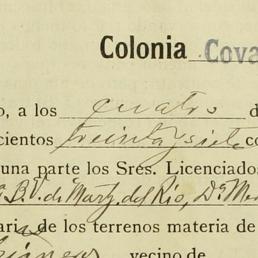 Colonia Cova
o, a los cuatro d
cientos treinta y siete co
una parte los Sres. Licenciados
B. V. de Martz. del Río, Dª Me
ari de los terrenos materia de
vecino de